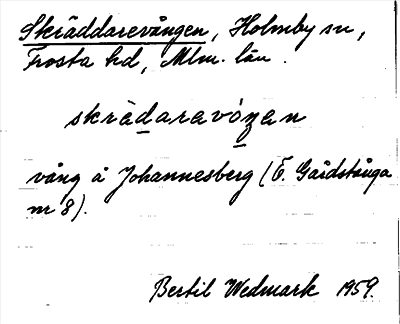 Skräddarevången, Holmby sn,
Frosta hd, Mlm. län.
skrädaravóŋen
vång å Johannesberg (Ö. Gårdstånga
nr 8).
Bertil Wedmark 1959.